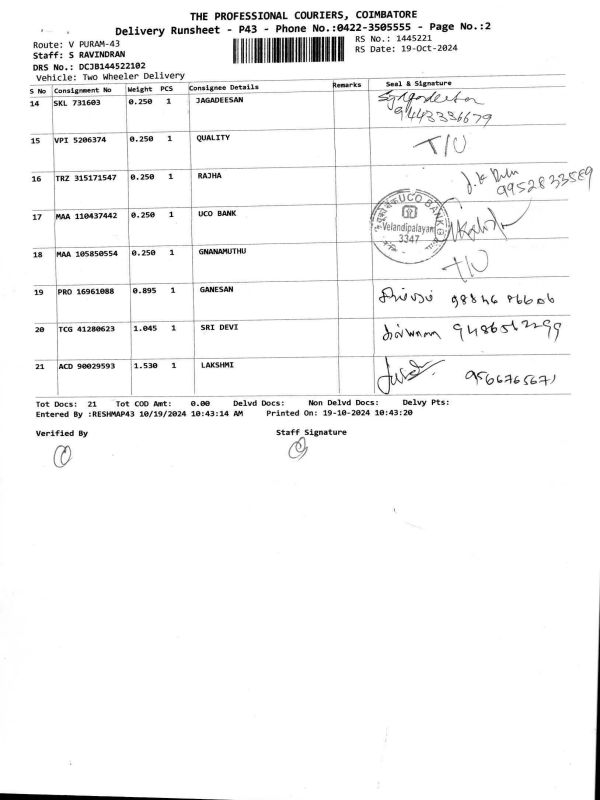 THE PROFESSIONAL COURIERS, COIMBATORE
Delivery Runsheet - P43 - Phone No.:0422-3505555 - Page No.:2
Route: V PURAM-43
RS No.: 1445221
Staff: S RAVINDRAN
RS Date: 19-Oct-2024
DRS No.: DCJB144522102
Vehicle: Two Wheeler Delivery
S No Consignment No Weight PCS Consignee Details Remarks Seal & Signature
14 SKL 731603 0.250 1 JAGADEESAN
9443336679
15 VPI 5206374 0.250 1 QUALITY T/U
16 TRZ 315171547 0.250 1 RAJHA
9952833589
17 MAA 110437442 0.250 1 UCO BANK
UCO BANK
Velandipalayam
3347
18 MAA 105850554 0.250 1 GNANAMUTHU T/U
19 PRO 16961088 0.895 1 GANESAN
20 TCG 41280623 1.045 1 SRI DEVI 9486562299
21 ACD 90029593 1.530 1 LAKSHMI 9566765671
Tot Docs: 21 Tot COD Amt: 0.00 Delvd Docs: Non Delvd Docs: Delvy Pts:
Entered By :RESHMAP43 10/19/2024 10:43:14 AM Printed On: 19-10-2024 10:43:20
Verified By Staff Signature